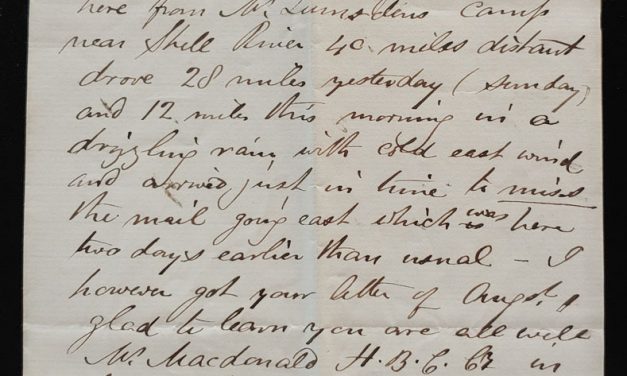 here from Mr. Lumsdens Camp
near Shell River 40 miles distant
drove 28 miles yesterday (Sunday)
and 12 miles this morning in a
drizzling rain with cold east wind
and arrived just in time to miss
the mail going east which was here
two days earlier than usual - I
however got your letter of Augst. 11
glad to learn you are all well
Mr. Macdonald H.B.C. Co in